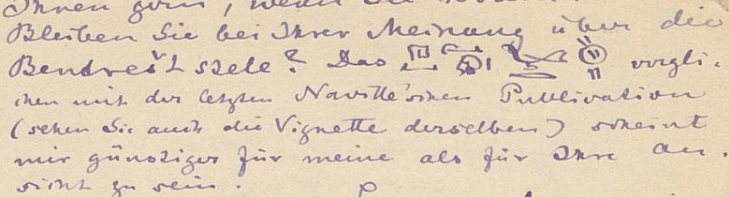 Ihnen gern, wenn
Bleiben Sie bei Ihrer Meinung über die
Bendrešt stele? Das vergli-
chen mit der letzten Naville'schen Publication
(sehen Sie auch die Vignette derselben) scheint
mir günstiger für meine als für Ihre An-
sicht zu sein.